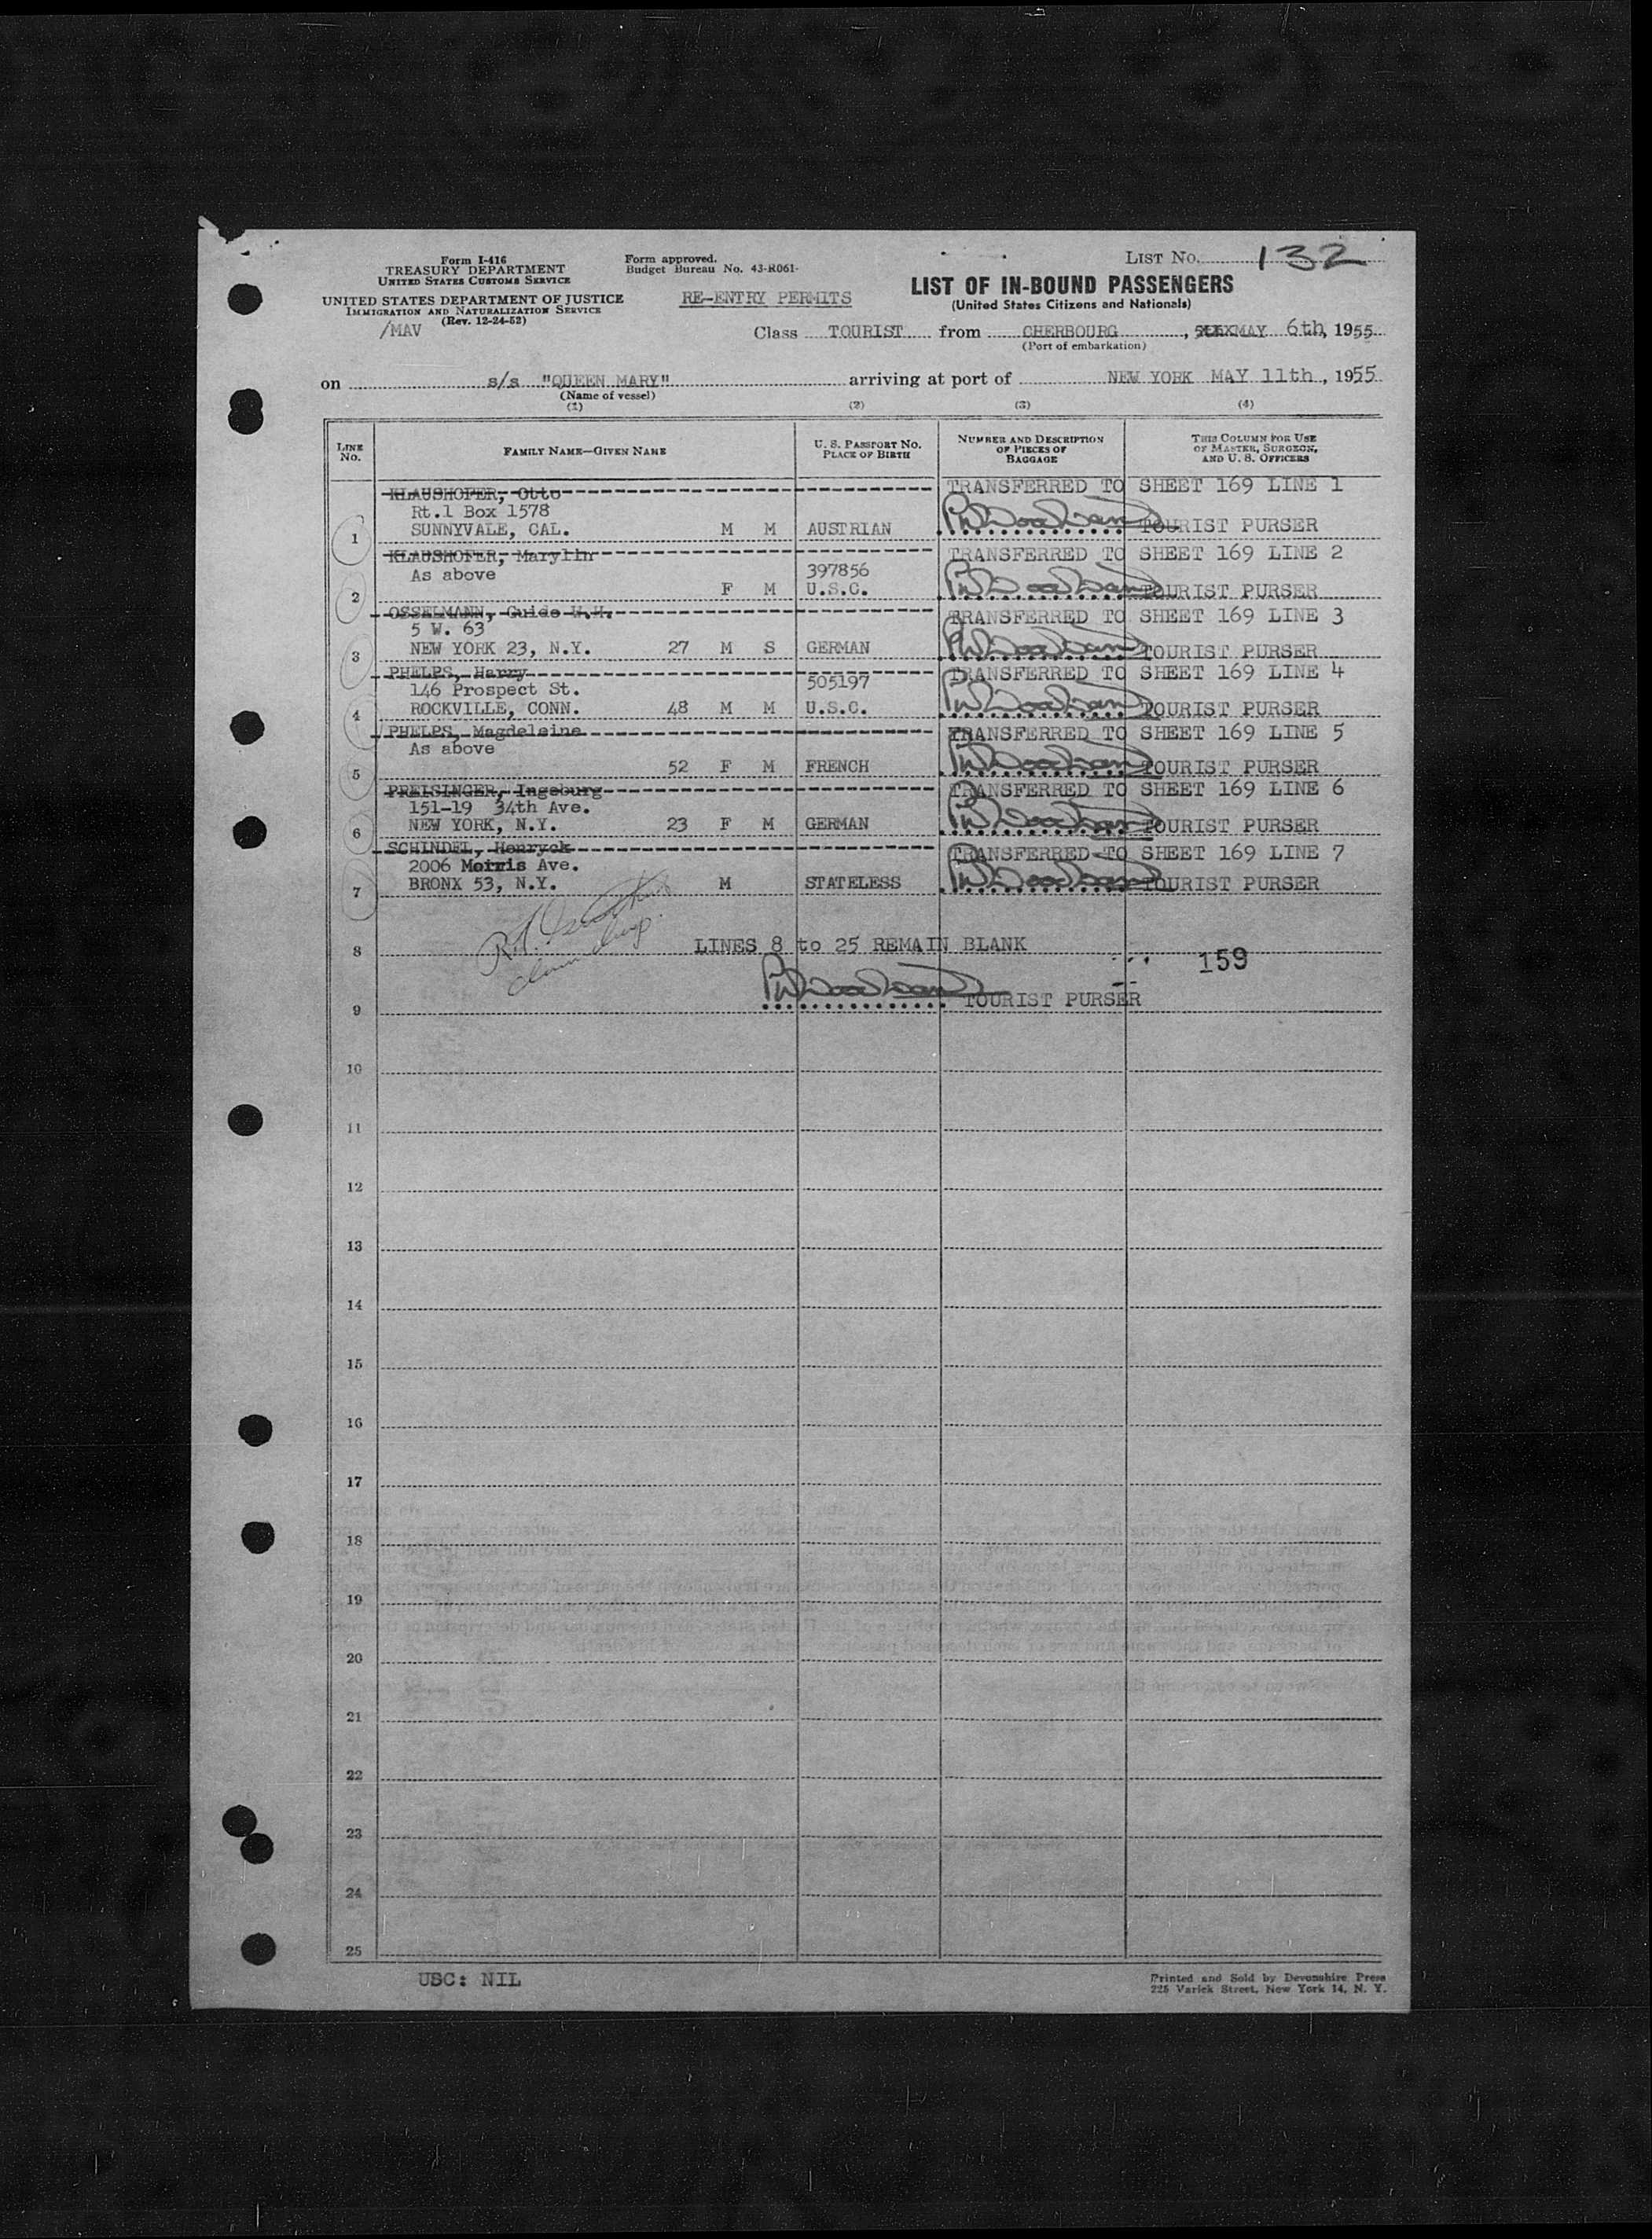 LIST No. 132
Form I-416
TREASURY DEPARTMENT
UNITED STATES CUSTOMS SERVICE
Form approved.
Budget Bureau No. 43-R061-
UNITED STATES DEPARTMENT OF JUSTICE
IMMIGRATION AND NATURALIZATION SERVICE
(Rev. 12-24-52)
/MAV
RE-ENTRY PERMITS
LIST OF IN-BOUND PASSENGERS
(United States Citizens and Nationals)
Class TOURIST from CHERBOURG, MAY 6th, 1955
(Port of embarkation)
on s/s "QUEEN MARY" arriving at port of NEW YORK MAY 11th, 1955
(Name of vessel)
(1) (2) (3) (4)
LINE No. FAMILY NAME—GIVEN NAME U. S. PASSPORT No. PLACE OF BIRTH NUMBER AND DESCRIPTION OF PIECES OF BAGGAGE THIS COLUMN FOR USE OF MASTER, SURGEON, AND U. S. OFFICERS
KLAUSHOFER, Otto TRANSFERRED TO SHEET 169 LINE 1
Rt.1 Box 1578
1 SUNNYVALE, CAL. M M AUSTRIAN TOURIST PURSER
KLAUSHOFER, Marylin TRANSFERRED TO SHEET 169 LINE 2
As above 397856
2 F M U.S.C. TOURIST PURSER
OSSELMANN, Guido W.H. TRANSFERRED TO SHEET 169 LINE 3
5 W. 63
3 NEW YORK 23, N.Y. 27 M S GERMAN TOURIST PURSER
PHELPS, Harry TRANSFERRED TO SHEET 169 LINE 4
146 Prospect St. 505197
4 ROCKVILLE, CONN. 48 M M U.S.C. TOURIST PURSER
PHELPS, Magdeleine TRANSFERRED TO SHEET 169 LINE 5
As above
5 52 F M FRENCH TOURIST PURSER
PREISINGER, Ingeburg TRANSFERRED TO SHEET 169 LINE 6
151-19 34th Ave.
6 NEW YORK, N.Y. 23 F M GERMAN TOURIST PURSER
SCHINDEL, Henryck TRANSFERRED TO SHEET 169 LINE 7
2006 Morris Ave.
7 BRONX 53, N.Y. M STATELESS TOURIST PURSER
8 LINES 8 to 25 REMAIN BLANK 159
9 TOURIST PURSER
10
11
12
13
14
15
16
17
18
19
20
21
22
23
24
25
USC: NIL
Printed and Sold by Devonshire Press
225 Varick Street, New York 14, N. Y.